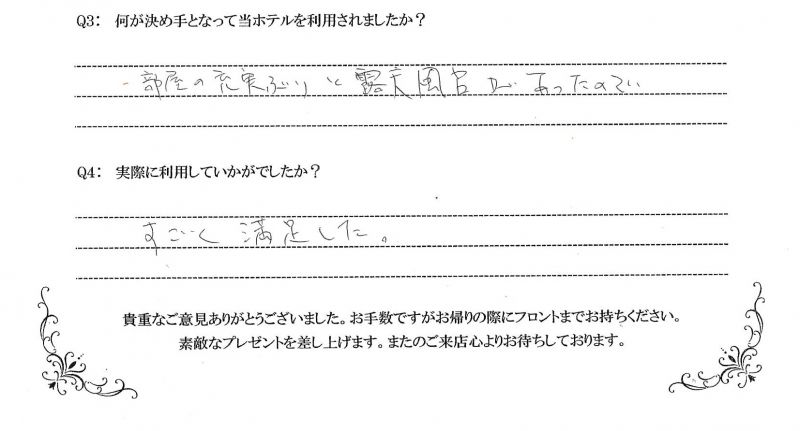 Q3: 何が決め手となって当ホテルを利用されましたか?
部屋の充実ぶりと露天風呂があったので
Q4: 実際に利用していかがでしたか?
すごく満足した。
貴重なご意見ありがとうございました。お手数ですがお帰りの際にフロントまでお持ちください。
素敵なプレゼントを差し上げます。またのご来店心よりお待ちしております。